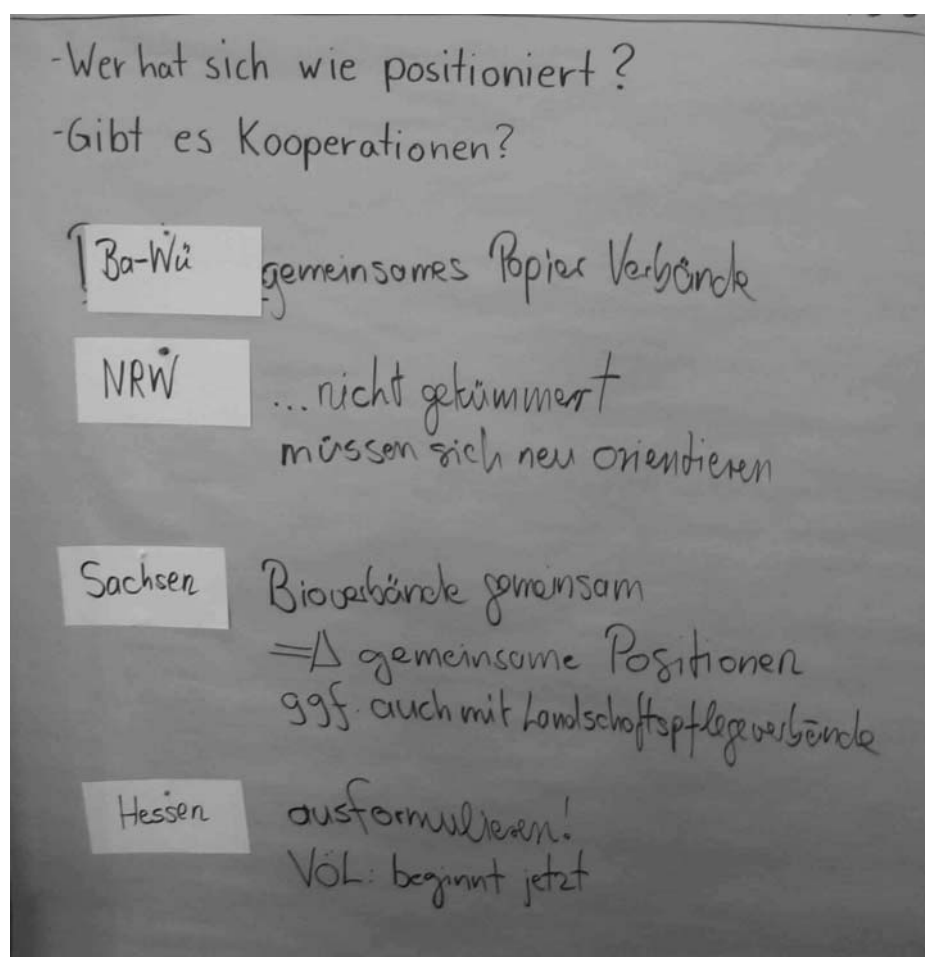 -Wer hat sich wie positioniert?
-Gibt es Kooperationen?
Ba-Wü gemeinsames Papier Verbände
NRW ...nicht gekümmert
müssen sich neu orientieren
Sachsen Bioverbände gemeinsam
=> gemeinsame Positionen
ggf. auch mit Landschaftspflegeverbände
Hessen ausformulieren!
VÖL: beginnt jetzt